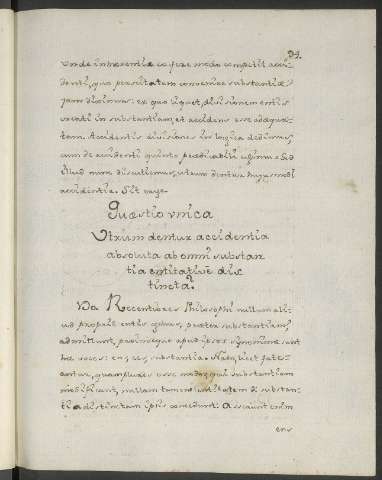 34.
Unde inhærentiæ eo fere modo competit acci-
denti, quo perseitatem convenire substantiæ
jam diximus: ex quo liquet, divisionem entis
creati in substantiam, et accidens esse adæqua-
tam. Accidentis divisiones in logica dedimus,
cum de accidenti quinto prædicabili egimus. Sed
illud nunc discutiemus, utrum dentur hujusmodi
accidentia. Sit ergo
Quæstio unica
Utrum dentur accidentia
absoluta ab omni substan
tia entitative dis
tincta?
Recentiores Philosophi nullum ali-
ud proprie entis genus, præter substantiam,
admittunt, proindeque apud ipsos synonima sunt
hæ voces: ens, res, substantia. Nam licet fate-
antur, quamplures esse modos, qui substantiam
modificant, nullam tamen entitatem a substan-
tia distinctam ipsis concedunt. Asserunt enim
ens